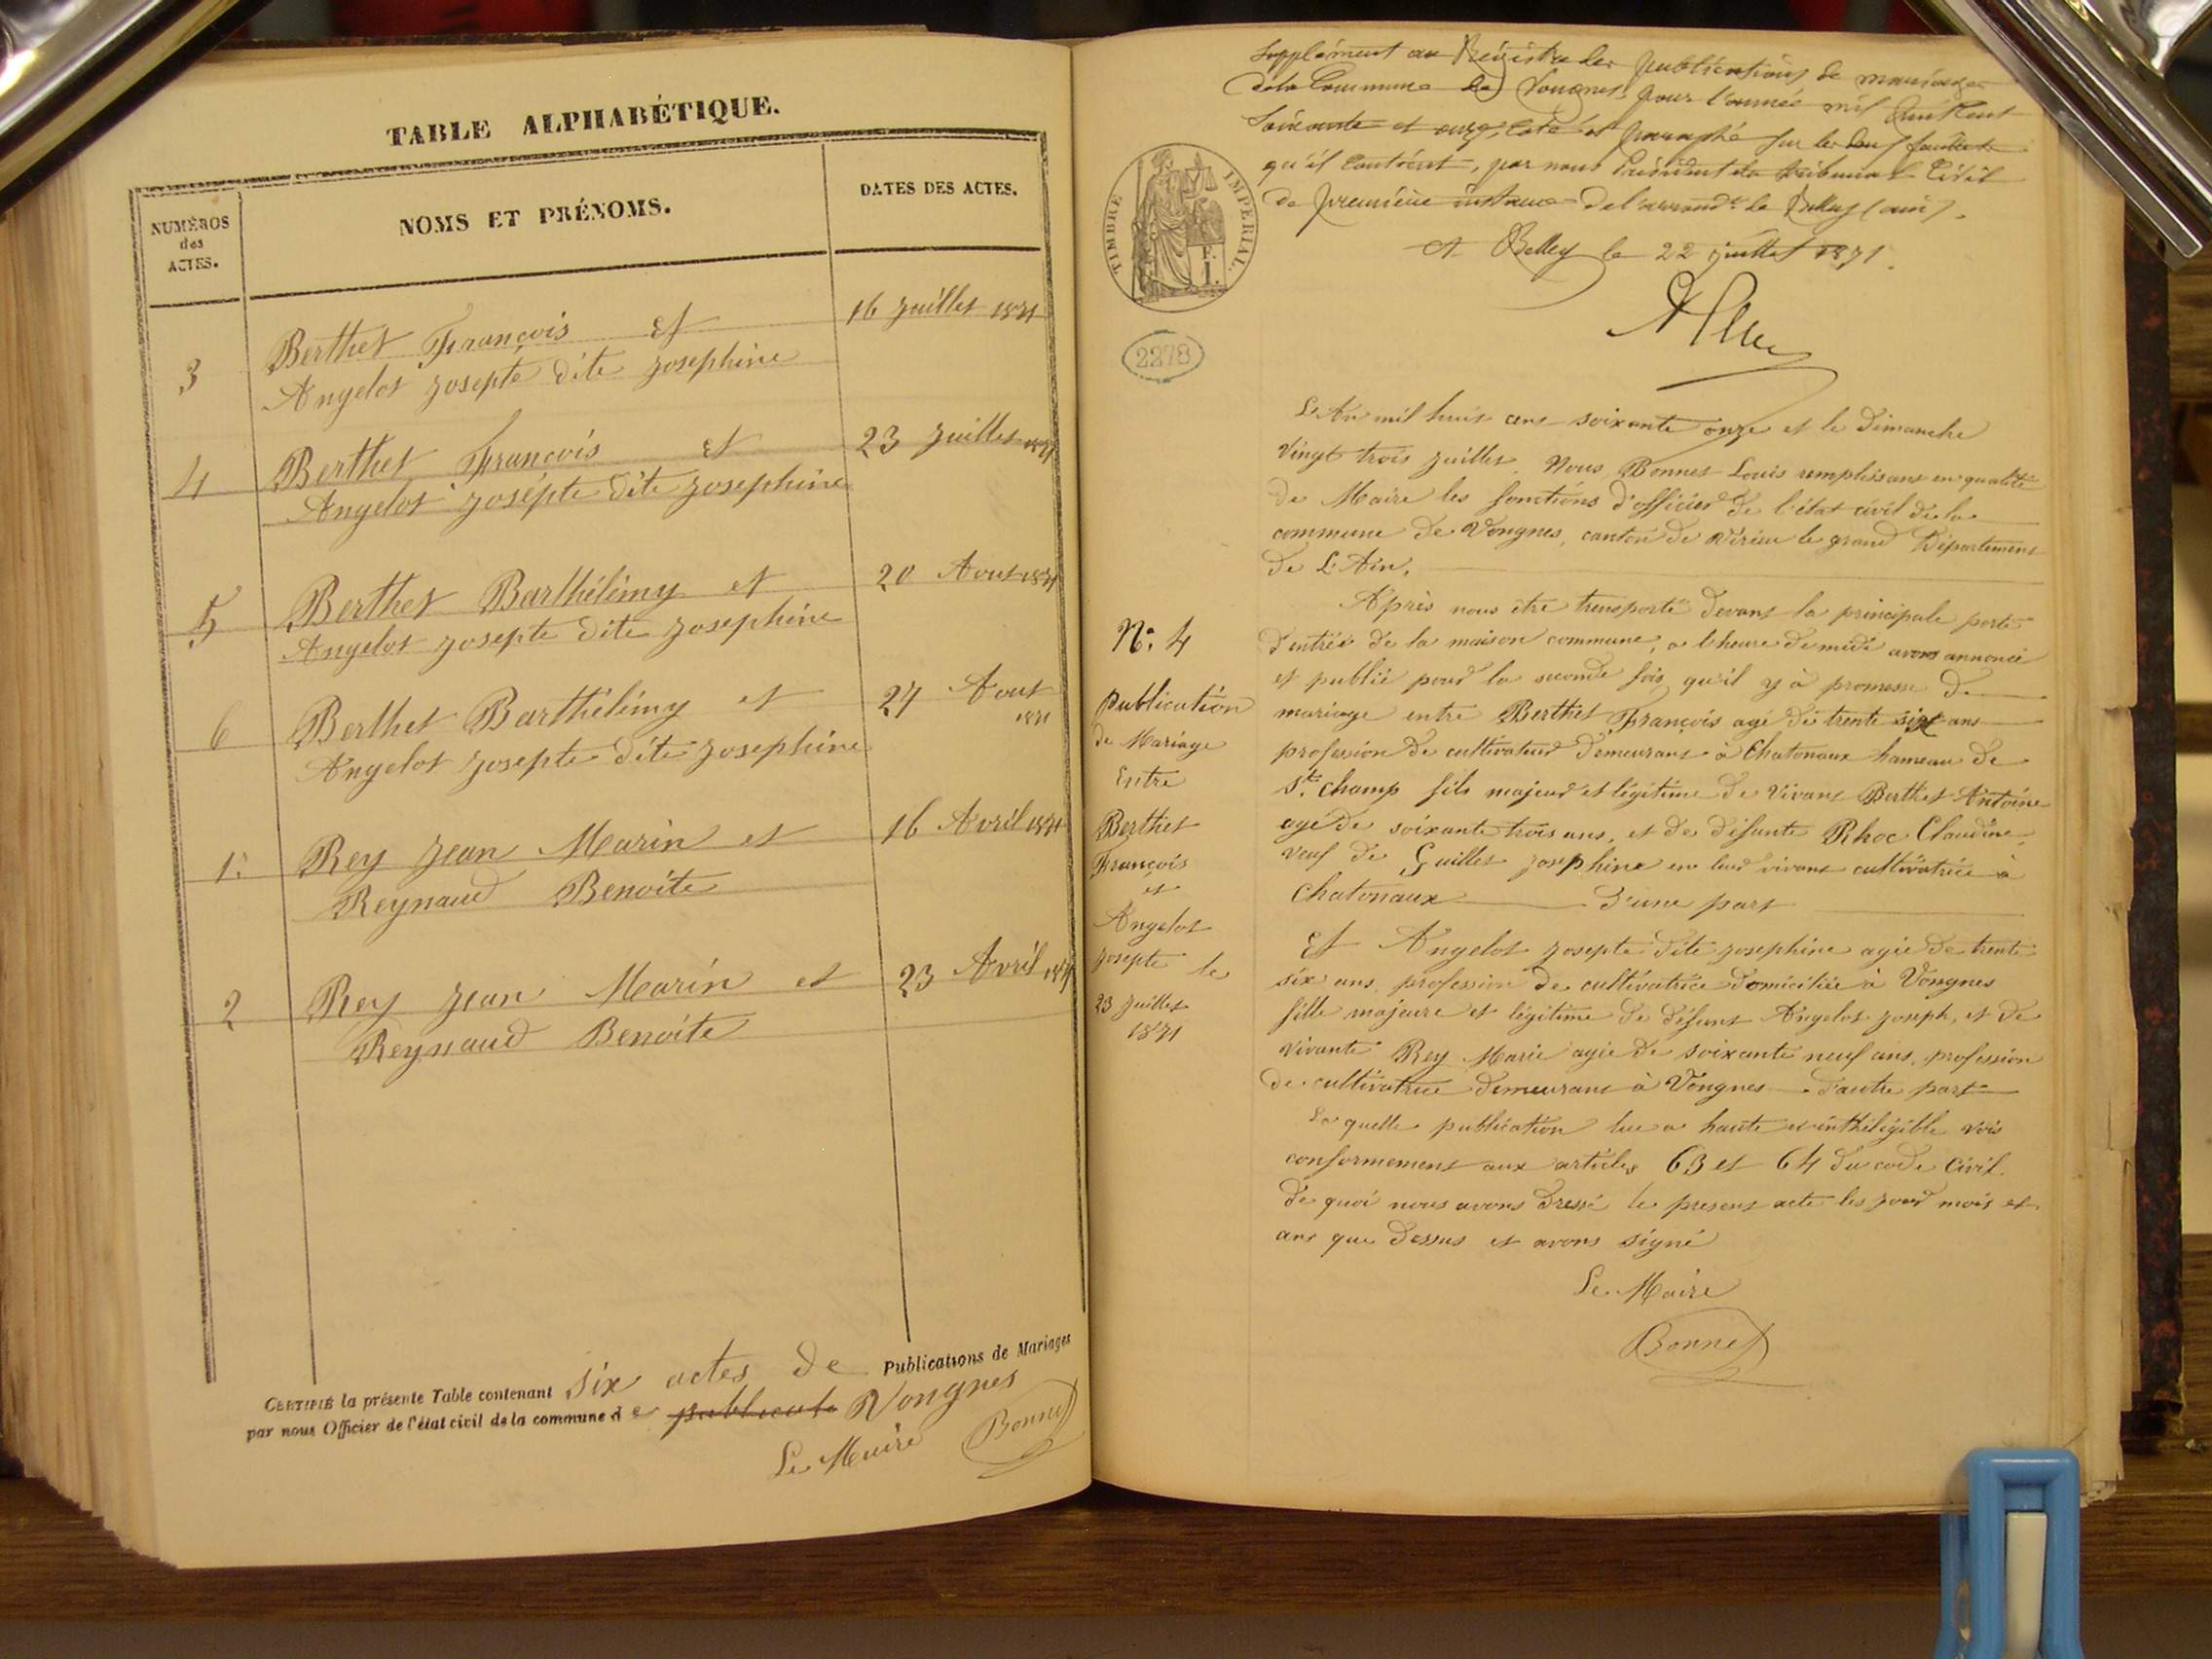 TABLE ALPHABÉTIQUE.
NUMÉROS
des
ACTES.
NOMS ET PRÉNOMS.
DATES DES ACTES.
3 Berthet François et 16 Juillet 1871
Angelot Josepte dite Josephine
4 Berthet François et 23 Juillet 1871
Angelot Josépte dite Josephine
5 Berthet Barthélémy et 20 Aout 1871
Angelot Josepte dite Josephine
6 Berthet Barthélémy et 27 Aout
1871
Angelot Josepte dite Josephine
1. Rey Jean Marin et 16 Avril 1871
Reynaud Benoite
2 Rey Jean Marin et 23 Avril 1871
Reynaud Benoite
CERTIFIÉ la présente Table contenant six actes de Publications de Mariages
par nous Officier de l'état civil de la commune de Vongnes
Le Maire Bonnet
Supplément au Régistre des publications de mariages
de la Commune de Vongnes, pour l'année mil huit cent
soixante et onze, coté et paraphé sur les deux feuillets
qu'il contient, par nous Président du tribunal Civil
de première instance de l'arrondt de Belley (ain).
A Belley le 22 juillet 1871.
TIMBRE IMPÉRIAL.
F.
1.
2278
L'An mil huit cent soixante onze et le dimanche
vingt trois Juillet. Nous Bonnet Louis remplissant en qualité
de Maire les fonctions d'officier de l'état civil de la
commune de Vongnes, canton de Virieu le grand Département
de L'Ain.
Après nous être transporté devant la principale porte
d'entrée de la maison commune, a l'heure de midi avons annoncé
et publié pour la seconde fois qu'il y à promesse de
mariage entre Berthet François agé de trente six ans
profession de cultivateur demeurant à Chatonaux hameau de
St. Champ fils majeur et légitime de vivant Berthet Antoine
agé de soixante trois ans, et de défunte Rhoc Claudine
veuf de Guillet Josephine en leur vivant cultivatrice à
Chatonaux d'une part
Et Angelot Josepte dite Josephine agée de trente
six ans, profession de cultivatrice domiciliée à Vongnes
fille majeure et légitime de défunt Angelot Joseph, et de
vivante Rey Marie agée de soixante neuf ans, profession
de cultivatrice demeurant à Vongnes d'autre part
La quelle publication lue a haute et inthéligible vois
conformement aux articles 63 et 64 du code Civil.
de quoi nous avons dressé le present acte les jour mois et
ans que dessus et avons signé
Le Maire
Bonnet
No. 4
Publication
de Mariage
Entre
Berthet
François
et
Angelot
Josepte le
23 Juillet
1871